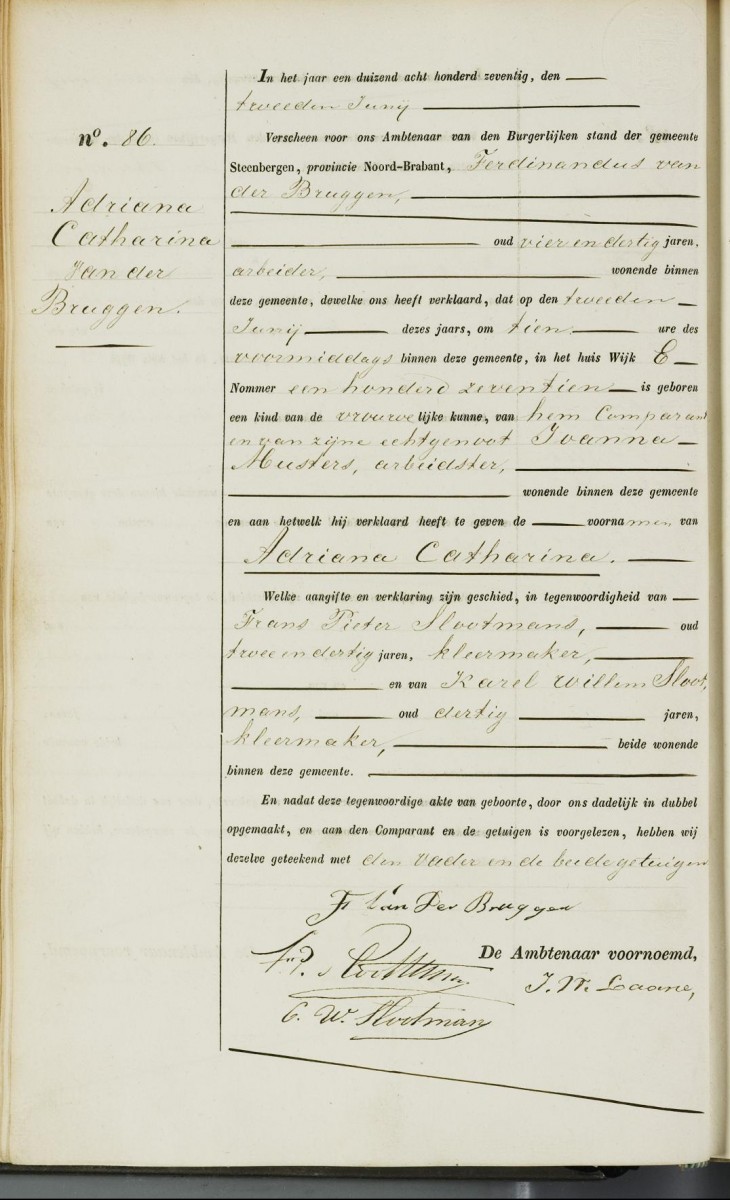 nº. 86.
Adriana
Catharina
Van der
Bruggen.
In het jaar een duizend acht honderd zeventig, den
tweeden Junij
Verscheen voor ons Ambtenaar van den Burgerlijken stand der gemeente
Steenbergen, provincie Noord-Brabant, Ferdinandus van
der Bruggen,
oud vier en dertig jaren,
arbeider, wonende binnen
deze gemeente, dewelke ons heeft verklaard, dat op den tweeden
Junij dezes jaars, om tien ure des
voormiddags binnen deze gemeente, in het huis Wijk E
Nommer een honderd zeventien is geboren
een kind van de vrouwelijke kunne, van hem Comparant
en van zijne echtgenoot Joanna
Musters, arbeidster,
wonende binnen deze gemeente
en aan hetwelk hij verklaard heeft te geven de voornamen van
Adriana Catharina.
Welke aangifte en verklaring zijn geschied, in tegenwoordigheid van
Frans Pieter Slootmans, oud
twee en dertig jaren, kleermaker,
en van Karel Willem Sloot,
mans, oud dertig jaren,
kleermaker, beide wonende
binnen deze gemeente.
En nadat deze tegenwoordige akte van geboorte, door ons dadelijk in dubbel
opgemaakt, en aan den Comparant en de getuigen is voorgelezen, hebben wij
dezelve geteekend met den Vader en de beide getuigen
F Van Der Bruggen
De Ambtenaar voornoemd,
J. W. Laane,
C. W. Slootman